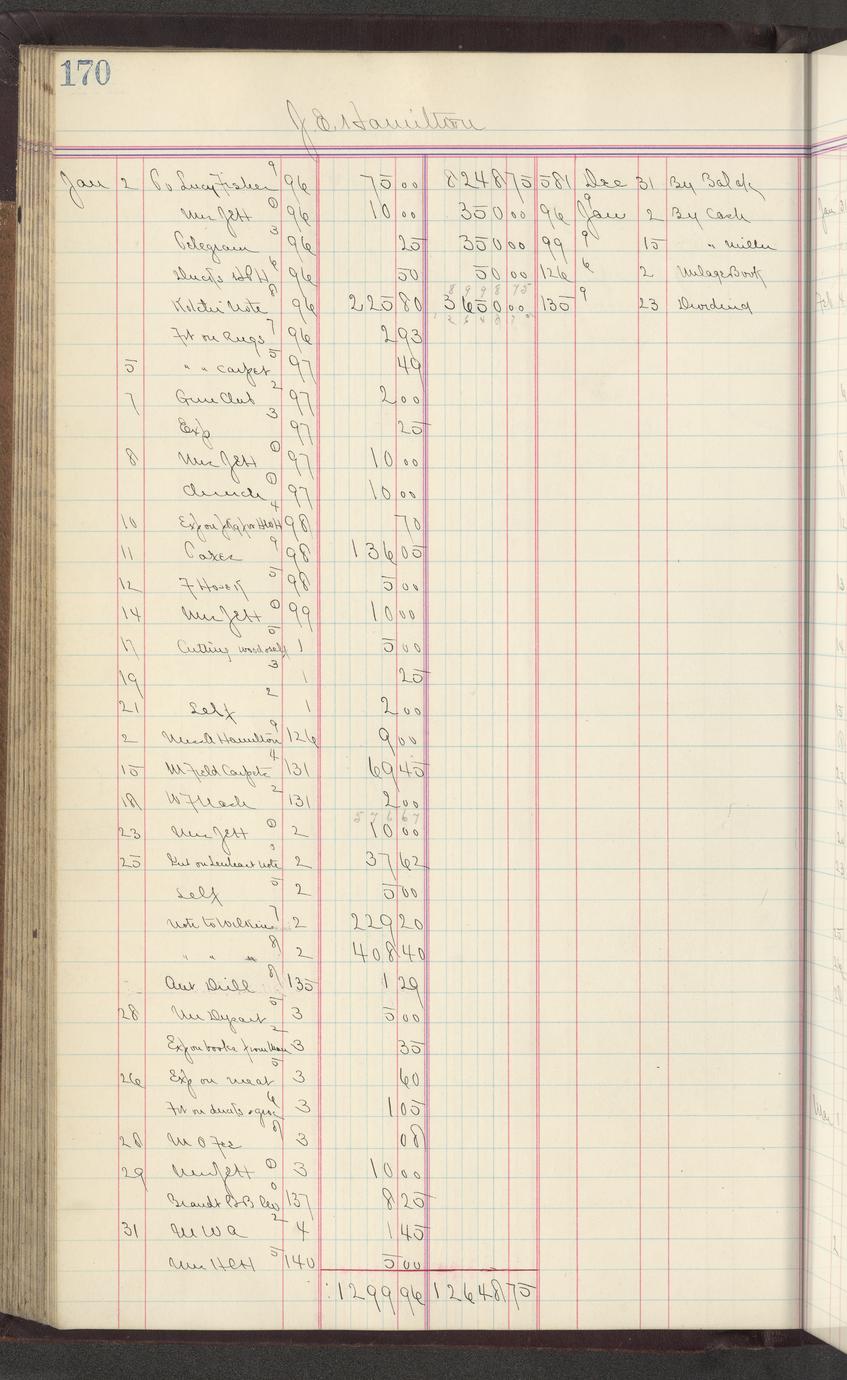 170
J. E. Hamilton
Jan 2 To Lucy Fisher 9 96 75 00 8248 75 581 Dec 31 By Balce
Mrs JEH 0 96 10 00 350 00 96 9 Jan 2 By Cash
Telegram 3 96 25 350 00 99 9 15 " Miller
Ducts H 6 96 50 50 00 126 6 2 Milage Book
8998 75
Note 8 96 225 80 3650 00 135 9 23 Dividing
12648 75
Frt on Rugs 7 96 2 93
5 " " Carpet 5 97 49
7 Gun Club 2 97 2 00
Exp 3 97 25
8 Mrs JEH 0 97 10 00
Church 0 97 10 00
10 Exp on for 4 98 70
11 Taxes 9 98 136 05
12 F 5 98 5 00
14 Mrs JEH 0 99 10 00
17 Cutting wood 5 1 5 00
19 3 1 25
21 Self 2 1 2 00
2 Mrs A Hamilton 9 126 9 00
15 M Field Carpets 4 131 69 45
18 W F Nash 2 131 2 00
576 67
23 Mrs JEH 0 2 10 00
25 Int on note 2 37 62
Self 5 2 5 00
Note to Wilkins 7 2 229 20
" " " 8 2 408 40
Drill 8 135 1 29
28 Mrs Dysart 5 3 5 00
Exp on books from 2 3 35
26 Exp on meat 5 3 60
Frt on ducts & 6 3 1 05
28 M O Fee 8 3 08
29 Mrs JEH 0 3 10 00
Brandt B & B 0 137 8 25
31 M W A 2 4 1 45
Mrs HCH 5 140 5 00
1299 96 12648 75